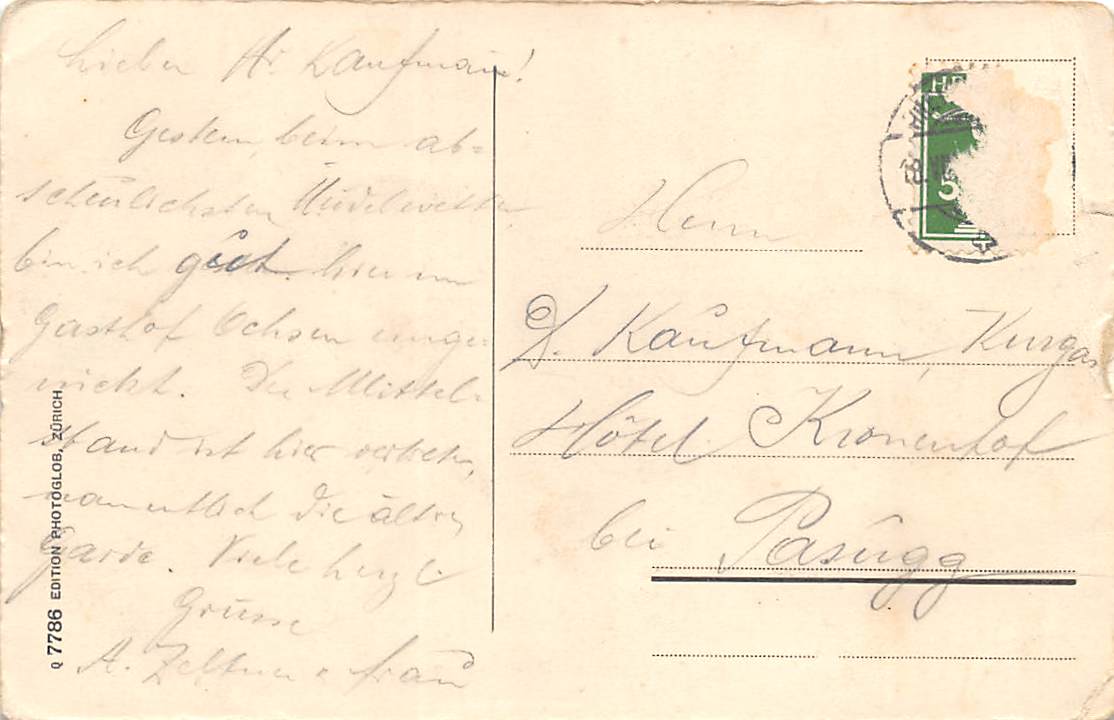 Lieber Hr. Kaufmann!
Gestern, beim ab-
scheulichsten Hudelwetter
bin ich gut hier im
Gasthof Ochsen einge-
rückt. Der Mittel-
stand ist hier vertreten,
namentlich die ältere
Garde. Viele herzl.
Grüsse
A. Zeltner & Frau
Q 7786 EDITION PHOTOGLOB, ZÜRICH
HE
5
Herrn
Kaufmann, Kurgast
Hôtel Kronenhof
bei Passugg